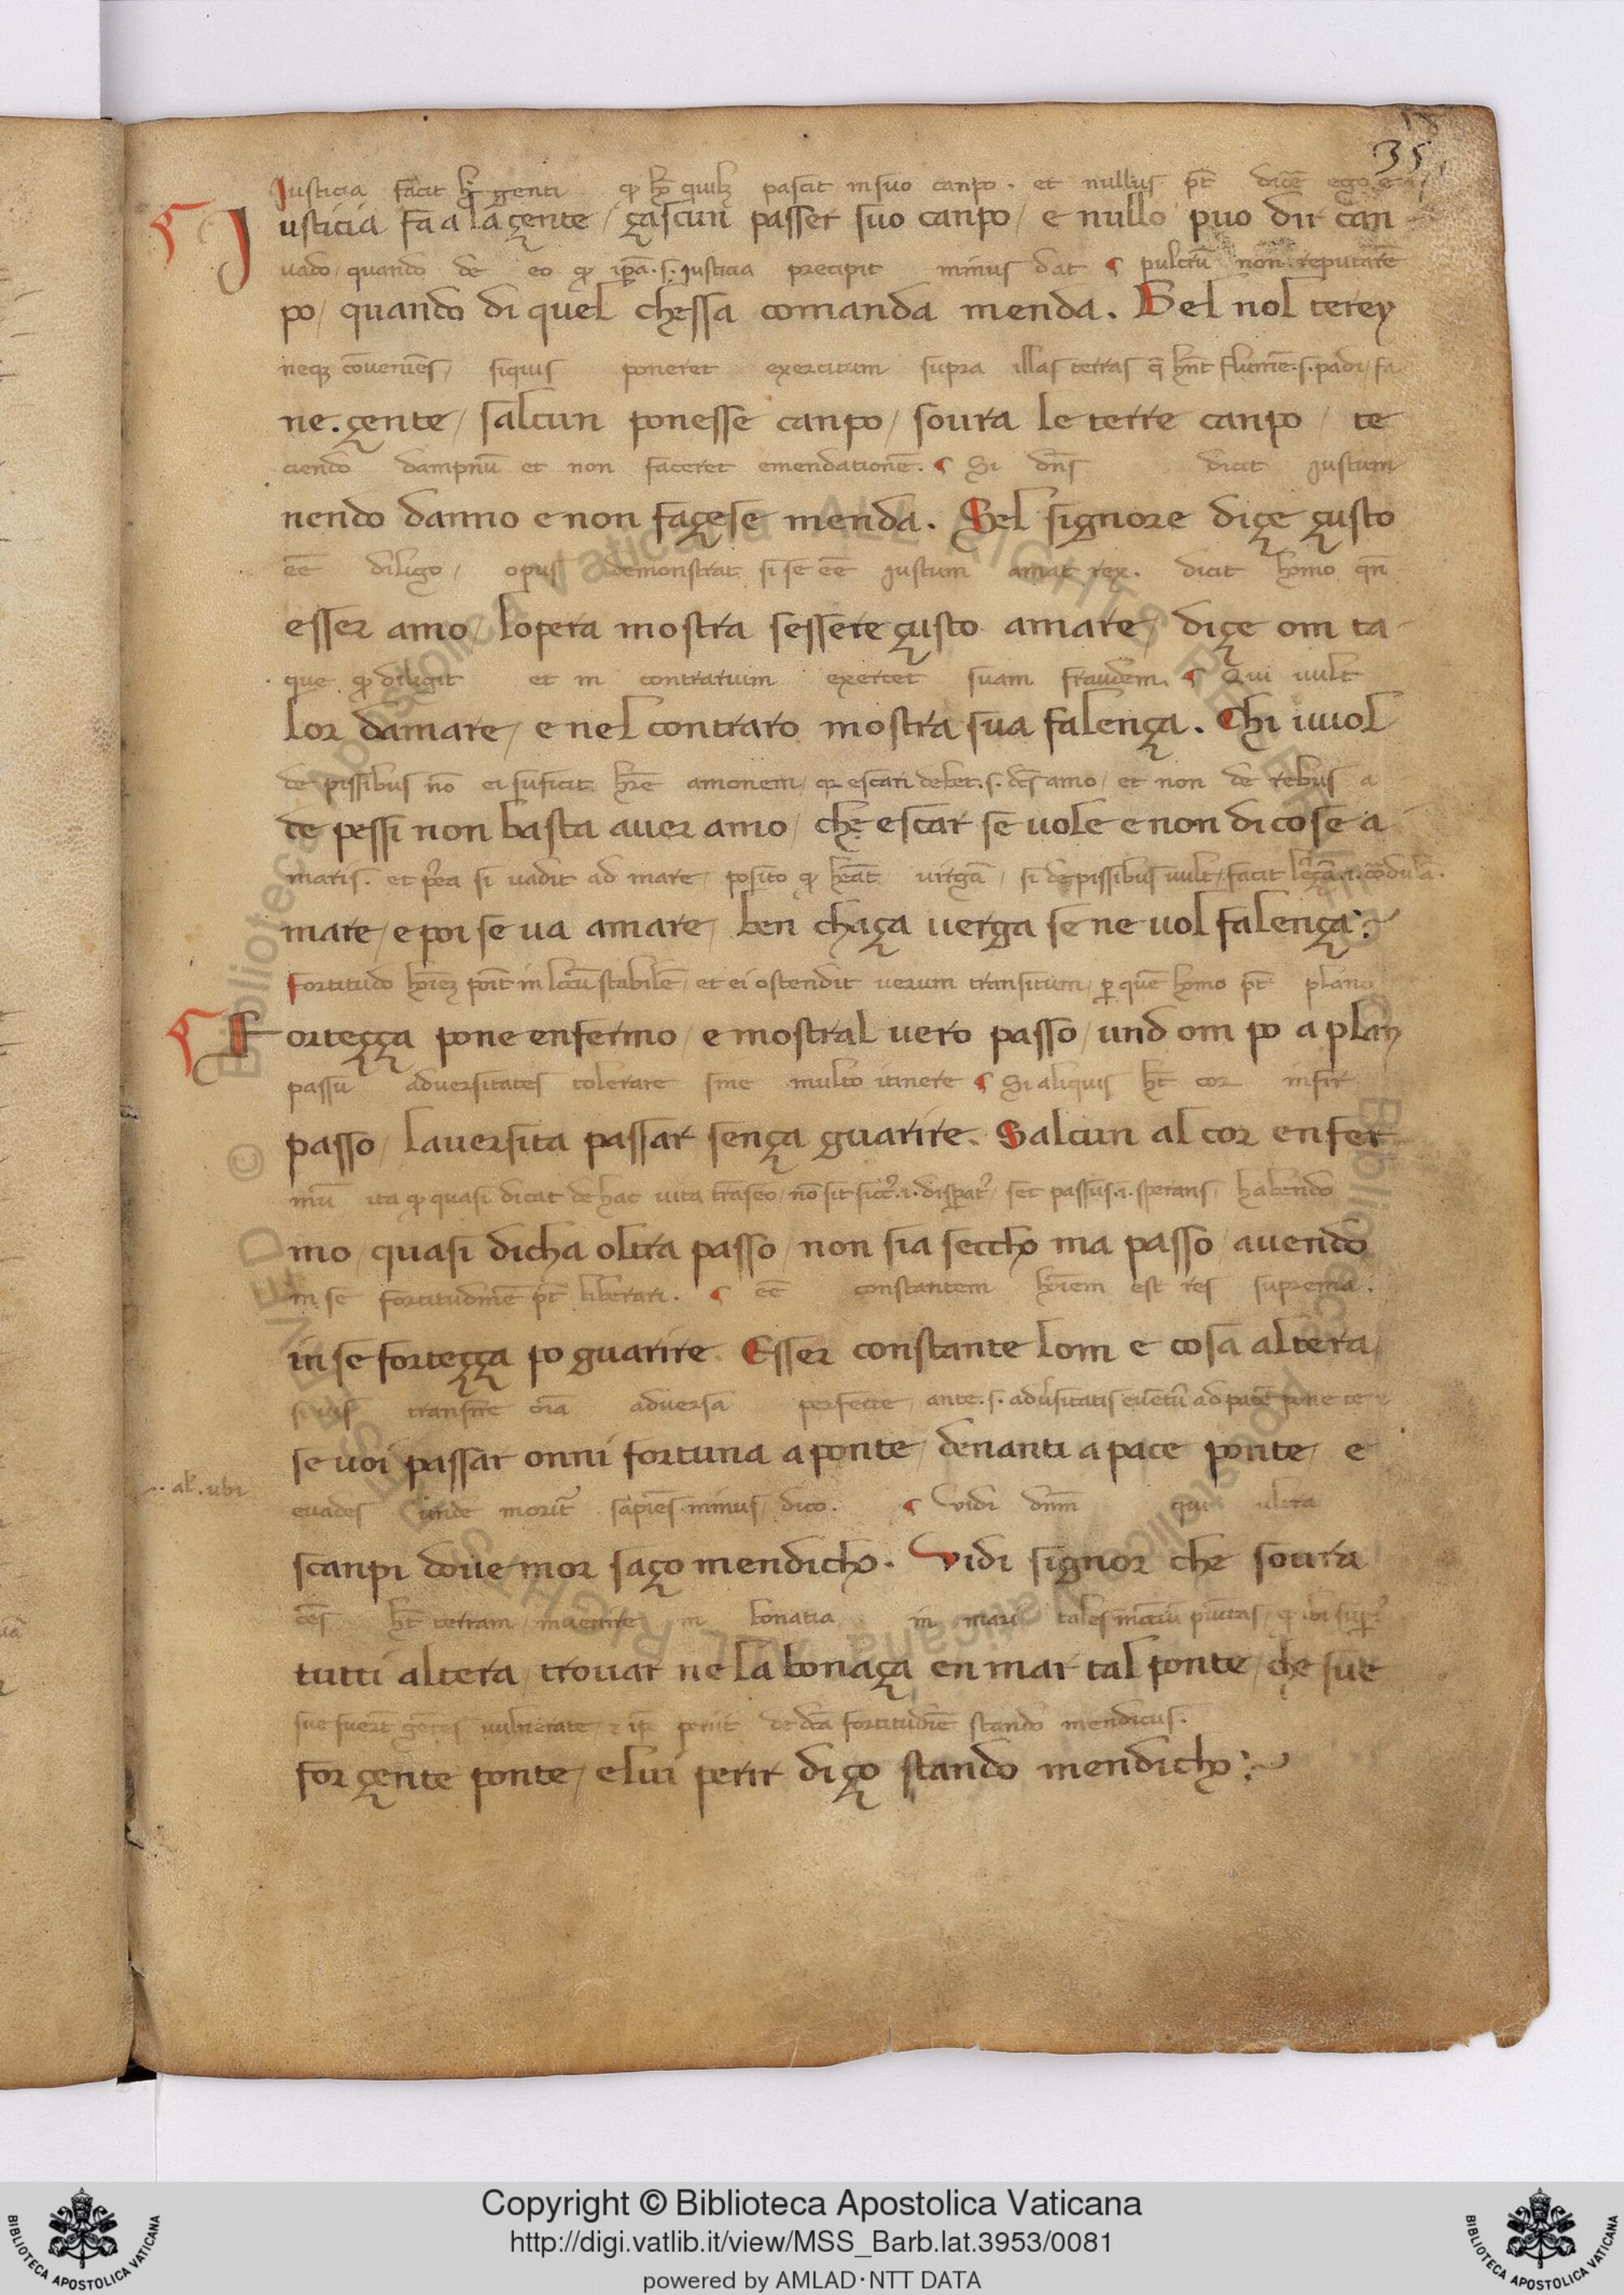 35
Justicia facit hͦ genti ꝙ hͦ quilꝫ pascit in suo canpo . et nullus pt̄ dicē ego e
Justicia fa a la çente / çascun passer suo canpo / e nullo puo dir can
uado / quando de eo ꝙ ip̄a .s. justicia precipit minus dat ¶ pulcrū non reputarē
po / quando di quel chessa comanda menda . Bel nol terey
neqꝫ cōueniēs / siquis poneret exercitum supra illas terras q̄ hn̄t flumē .s. padi / fa
ne . çente / salcun ponesse canpo / soura le terre canpo / te
ciendo dampnū et non faceret emendationē . ¶ Si dn̄s dicit justum
nendo danno e non façese menda . Sel signore diçe çusto
eē diligo / opus demonstrat si se eē justum amat rex . dicit homo qn̄
esser amo / lopera mostra sessere çusto amare / diçe om ta
que ꝙ diligit et in contrarium exercet suam fraudem . ¶ Qui uult
lor damare / e nel contraro mostra sua falença . Chi iuuol
de pissibus nō ei suficit hr̄e amonem / qꝛ escari debet .s. dc̄s amo / et non de rebus a
de pessi non basta auer amo / che escar se uole e non di cose a
maris . et p̄ea si uadit ad mare / posito ꝙ heāt uirgā / si de pissibus uult / facit
mare / e poi se ua amare / ben chaça uerga se ne uol falença :~
Fortitudo hoīeꝫ pōit in locū stabilē / et ei ostendit uerum transitum / ꝑ quē homo pt̄ plano
Forteçça pone enfermo / e mostral uero passo / und om po a plan
passu aduersitates tolerare sine multo itinere ¶ Si aliquis ht̄ cor infir
passo / lauersita passar sença guarire . Salcun al cor enfer
mū ita ꝙ quasi dicat de hac uita trāseo / nō sit / set passus .i. sperans / habendo
mo / quasi dicha oltra passo / non sia seccho ma passo / auendo
in se fortitudinē pt̄ liberari . ¶ eē constantem hoīem est res suprema .
in se forteçça po guarire . Esser constante lom e cosa altera /
si uis transire oīa aduersa perfecte / ante .s. aduersitatis euētū ad pacē pone te
se uoi passar onni fortuna a ponte / denanti a pace ponte / e
.. al' . ubi
euades unde morit᷑ sapiēs minus / dico . ¶ Vidi dnm̄ qui ultra
scanpi doue mor saço mendicho . Vidi signor che soura
oēs ht̄ terram / inuenire in bonatia in mari tales
tutti altera / trouar ne la bonaça en mar tal ponte / che sue
sue fuerūt gētes uulnerate / periit de dc̄a fortitudīe stando mendicus .
for çente ponte / e lui perir diço stando mendicho :~
Copyright © Biblioteca Apostolica Vaticana
http://digi.vatlib.it/view/MSS_Barb.lat.3953/0081
powered by AMLAD·NTT DATA
BIBLIOTECA APOSTOLICA VATICANA
BIBLIOTECA APOSTOLICA VATICANA